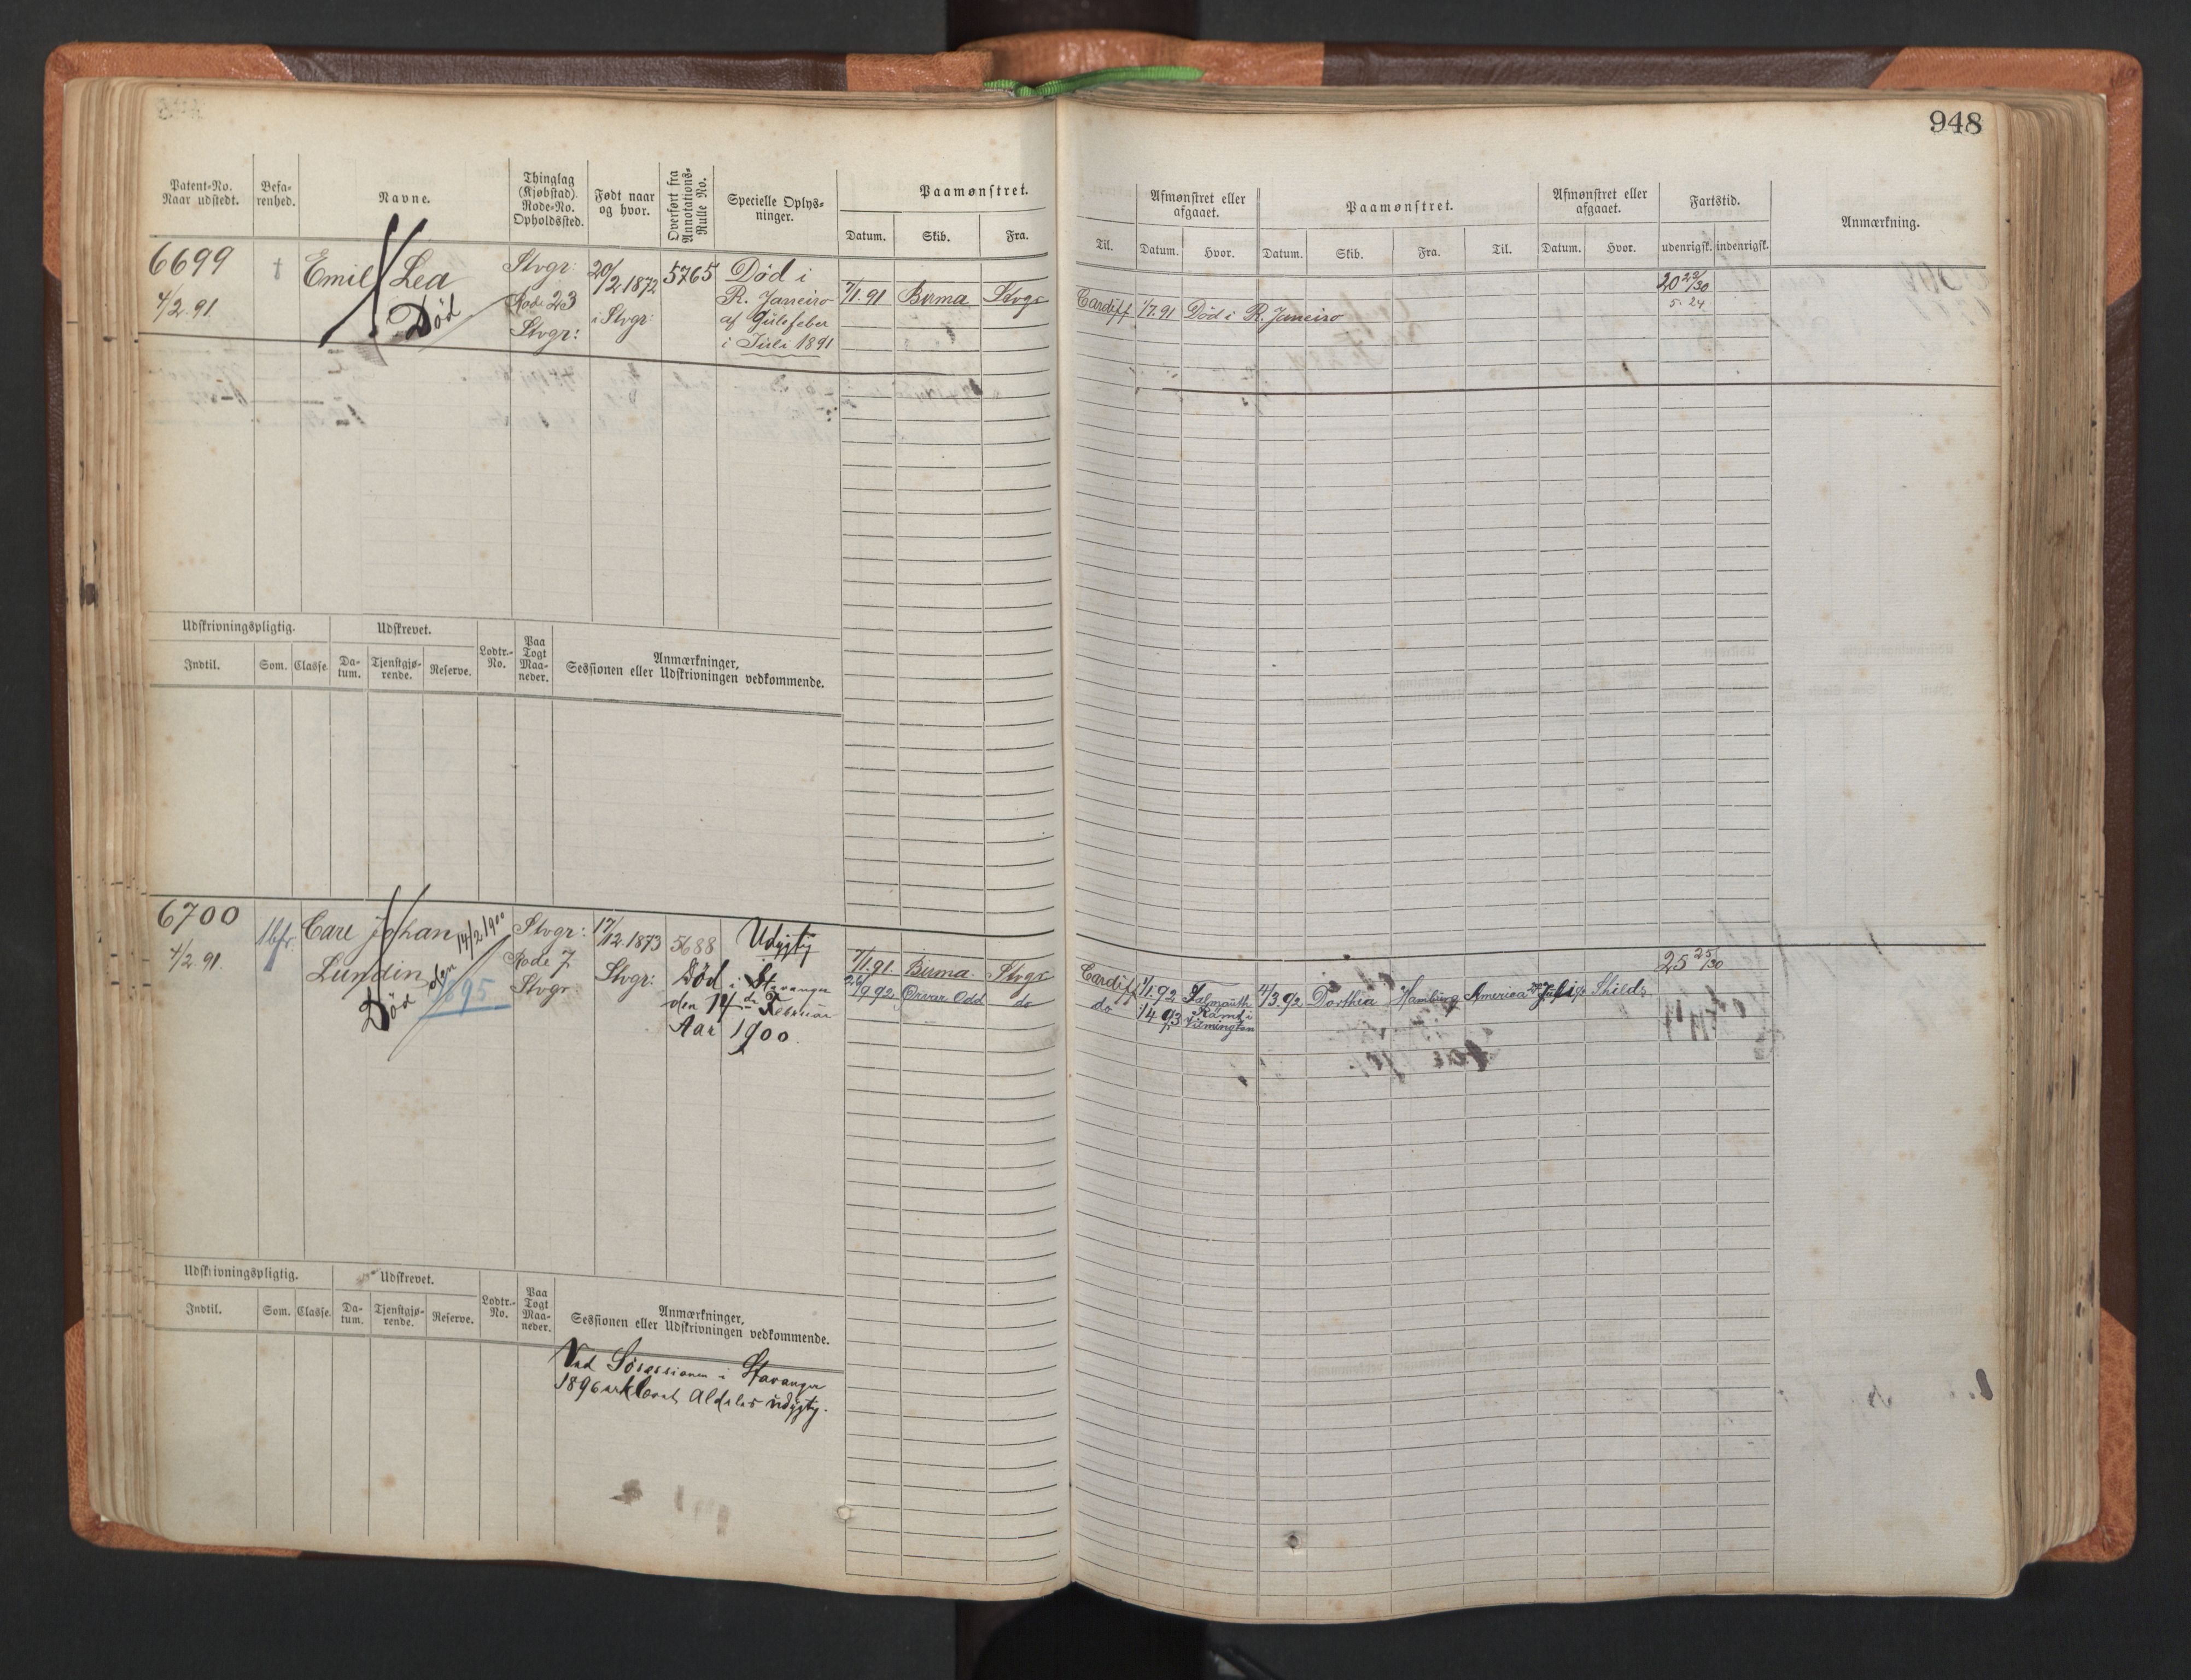 948
Patent-No.
Naar udstedt.
Befa-
renhed.
Navne.
Thinglag
(Kjøbstad).
Rode-No.
Opholdssted.
Født naar
og hvor.
Overført fra
Annotations-
Rulle No.
Specielle Oplys-
ninger.
Paamønstret.
Datum.
Skib.
Fra.
Til.
Afmønstret eller
afgaaet.
Datum.
Hvor.
Paamønstret.
Datum.
Skib.
Fra.
Til.
Afmønstret eller
afgaaet.
Datum.
Hvor.
Fartstid.
udenrigsk.
indenrigsk.
Anmærkning.
6699
4/2 91
†
Emil Lea
Død
Stvgr:
Rode 23
Stvgr:
20/2 1872
i Stvgr:
5765
Død i
R. Janeiro
af Gülefeber
i Jüli 1891
7/1 91 Birma Stvgr
Cardiff 1/7 91 Død i R. Janeiro
20 29/30
5. 24
Udskrivningspligtig.
Indtil.
Som.
Classe
Udskrevet.
Da-
tum.
Tjenstgjø-
rende.
Reserve.
Lodtr.-
No.
Paa
Togt
Maa-
neder.
Anmærkninger,
Sessionen eller Udskrivningen vedkommende.
6700
4/2 91.
1bfr.
Carl Johan
Lundin
Død den 14/2 1900
Stvgr:
Rode 7
Stvgr
17/12 1873
Stvgr:
5688
Udygtig
Død i Stavanger
den 14de Februar
Aar 1900.
7/1 91. Birma. Stvgr
Orvar Odd do
Cardiff 1/1 92 Falmouth
do 1/4 93
4/3 92 Dorthia Hamburg America Juli Shields
25 25/30
Udskrivningspligtig.
Indtil.
Som.
Classe.
Udskrevet.
Da-
tum.
Tjenstgjø-
rende.
Reserve.
Lodtr.-
No.
Paa
Togt
Maa-
neder.
Anmærkninger,
Sessionen eller Udskrivningen vedkommende.
Ved Søsessionen i Stavanger
1896 erklæret Aldeles üdygtig.